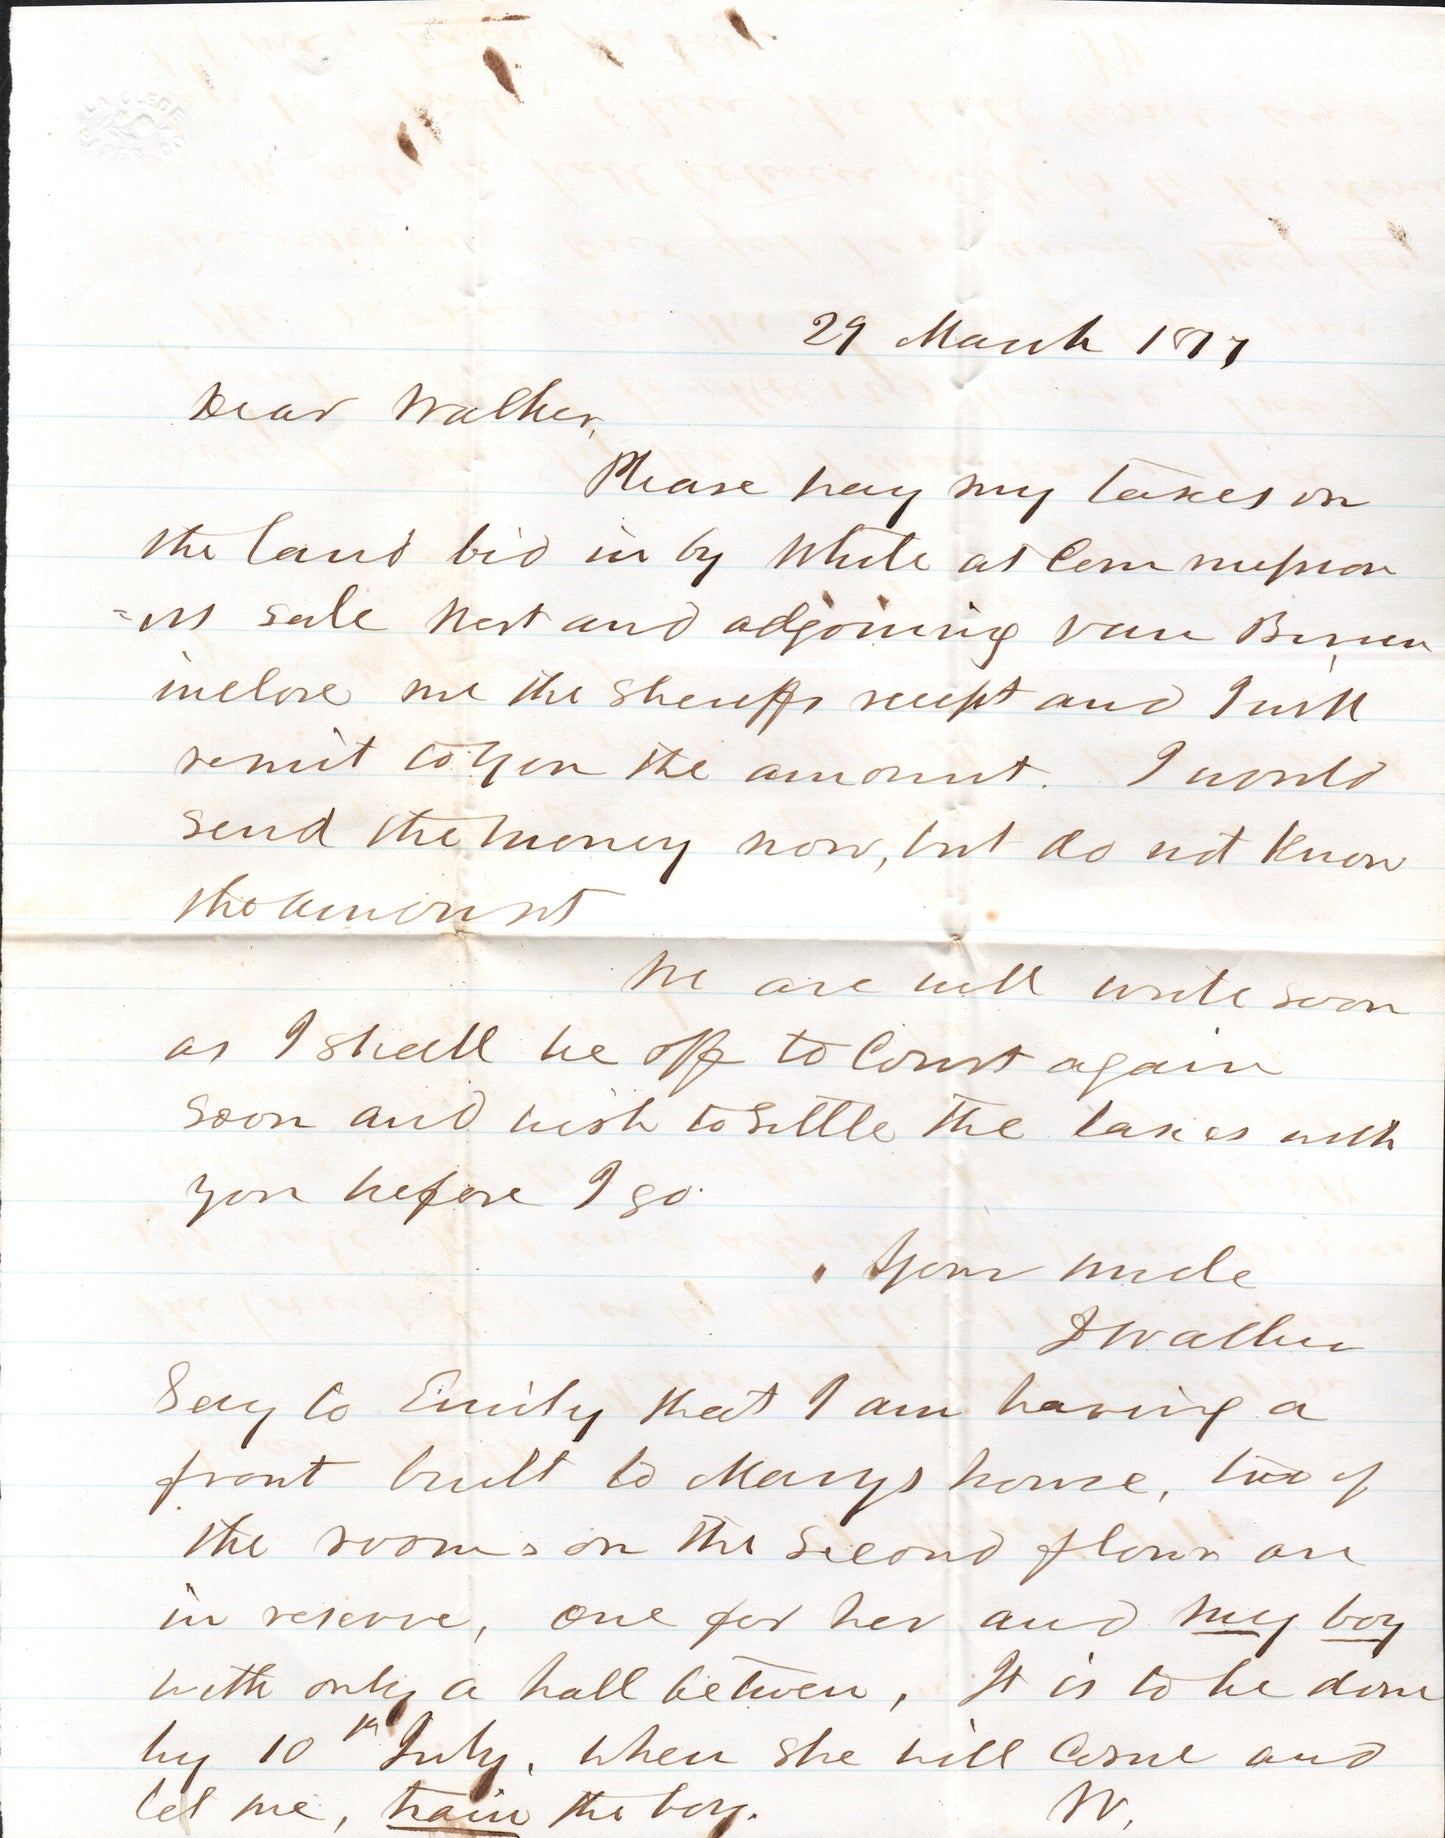 29 March 1877
Dear Walker,
Please pay my taxes on
the land bid in by White at Commission
=ers sale West and adjoining Van Buren
inclose me the Sheriffs receipt and I will
remit to you the amount. I would
send the money now, but do not know
the amount
We are well write soon
as I shall be off to Court again
soon and wish to settle the taxes with
you before I go.
Your uncle
J Walker
Say to Emily that I am having a
front built to Marys house, two of
the rooms on the second floor are
in reserve, one for her and my boy
with only a hall between, It is to be done
by 10th July, when she will come and
let me, train the boy. W.